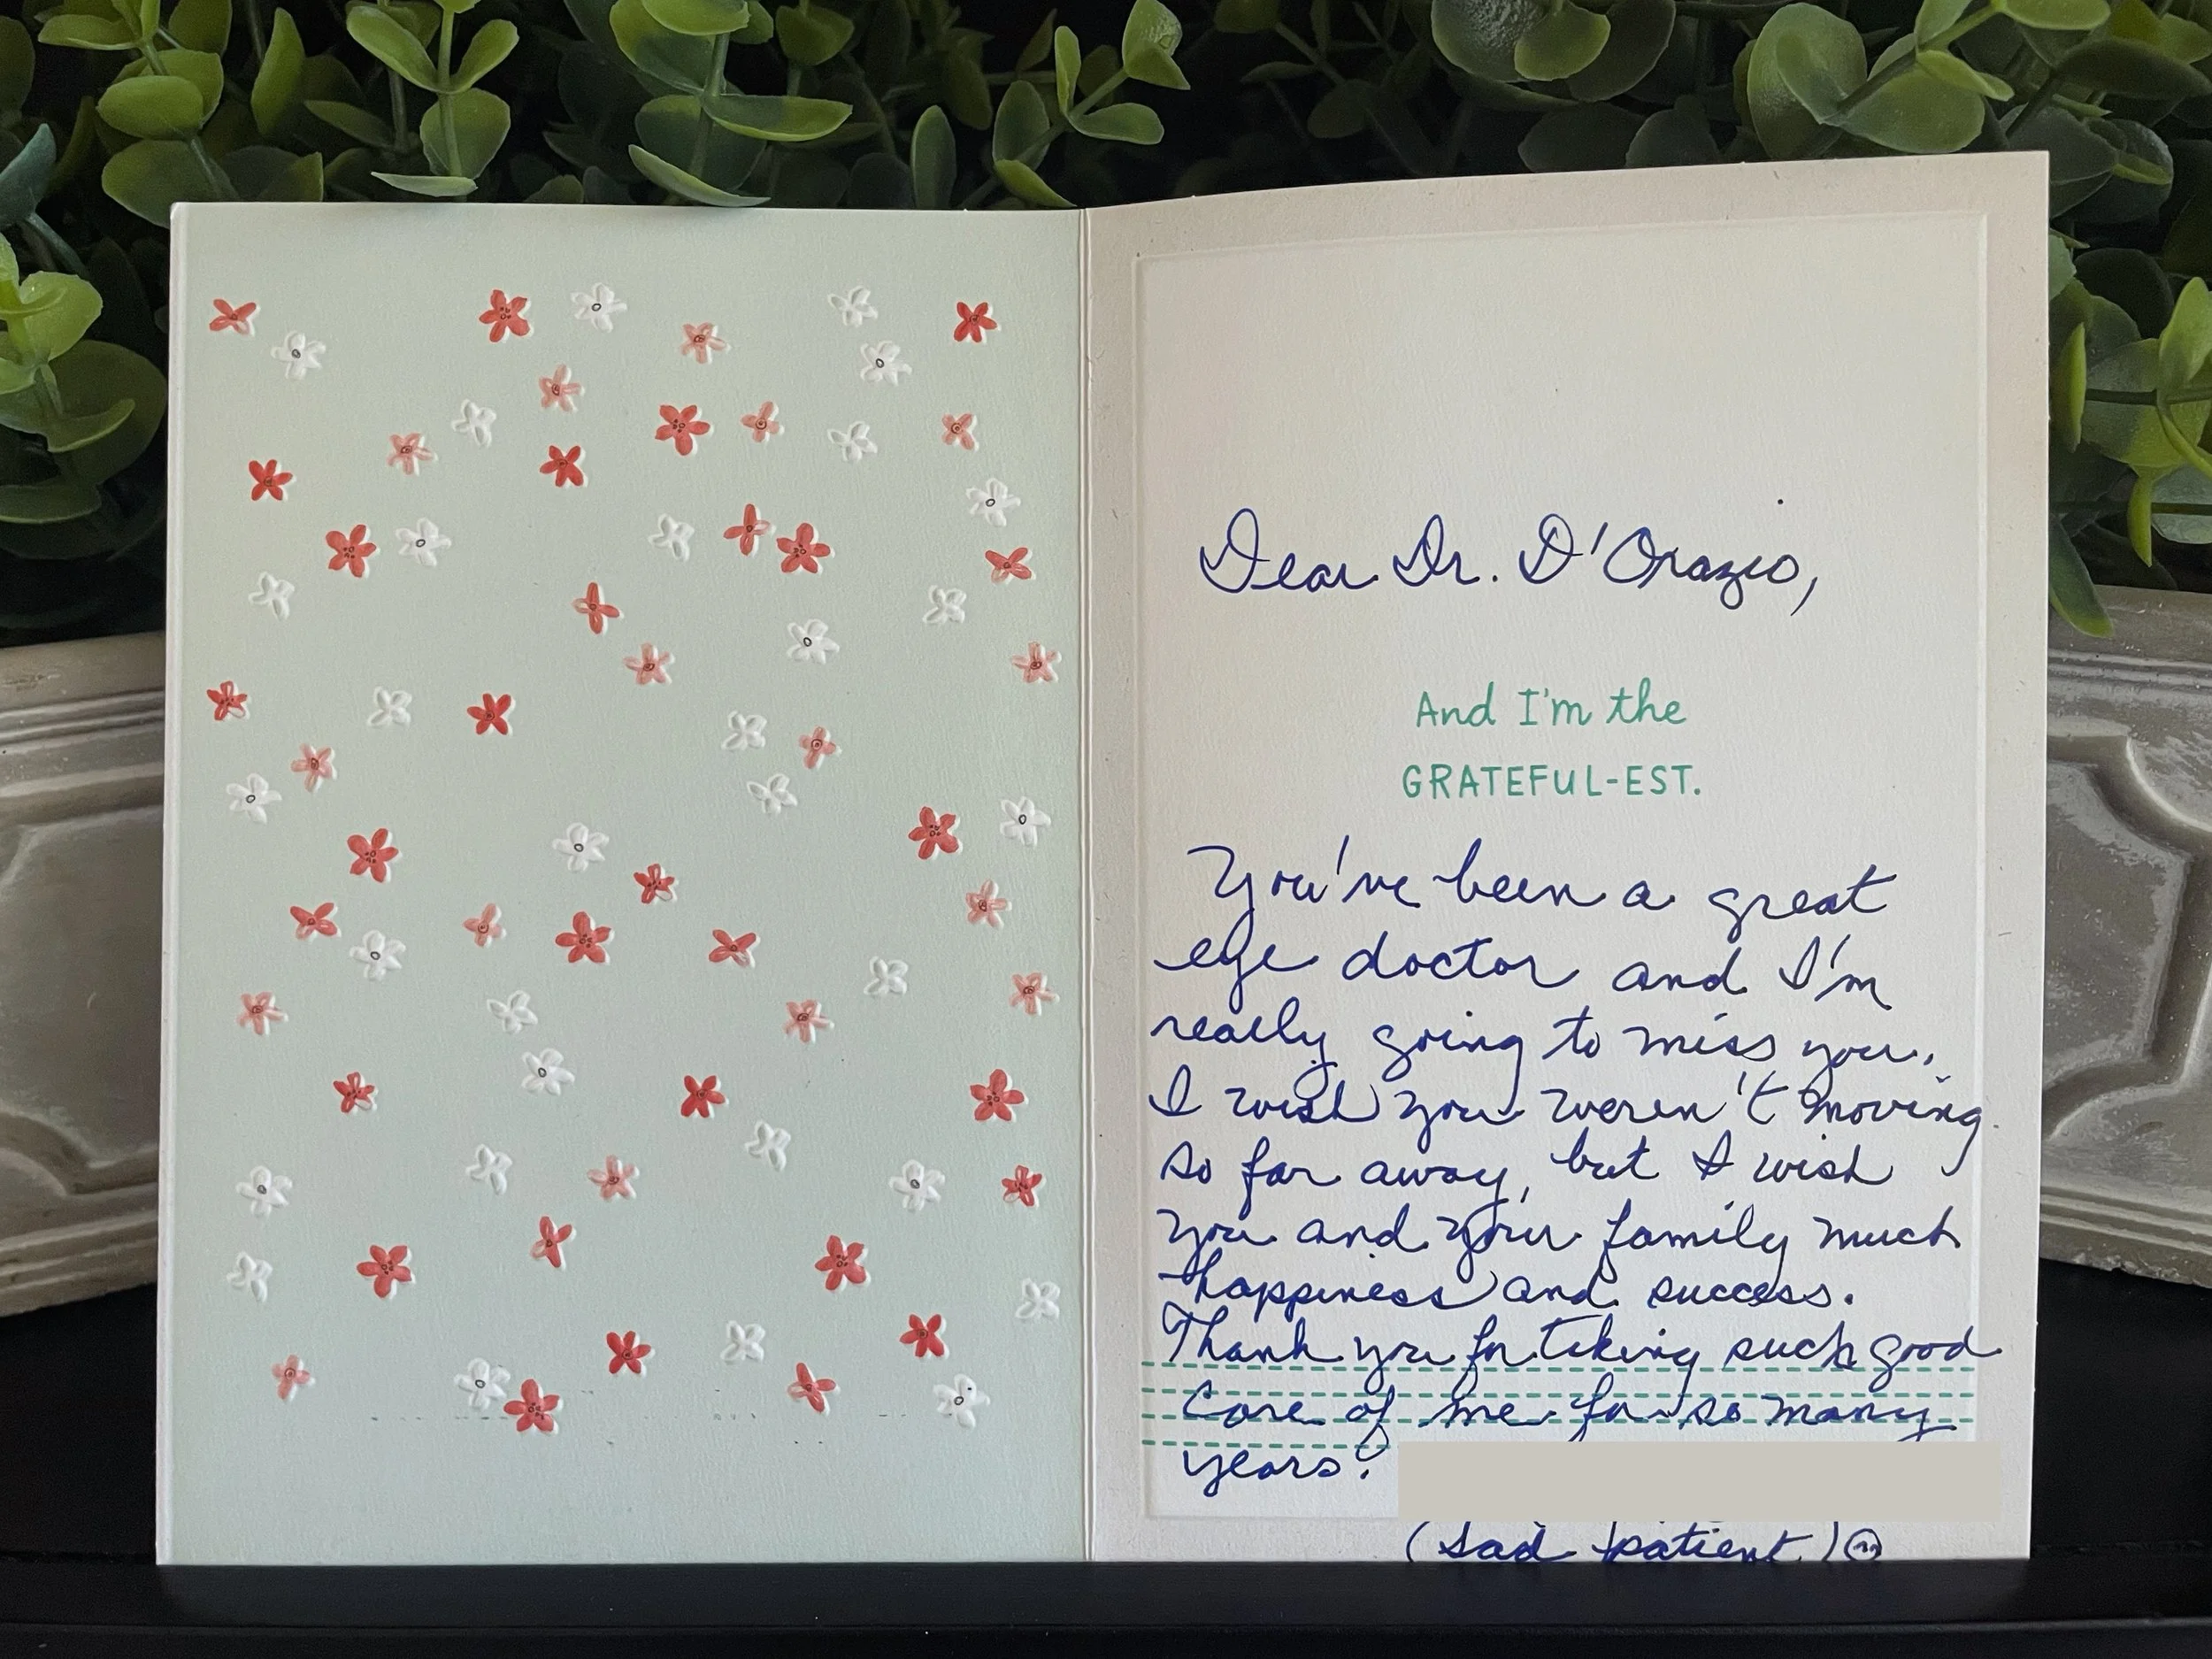 Dear Dr. D'Orazio,
And I'm the
GRATEFUL-EST.
You've been a great
eye doctor and I'm
really going to miss you.
I wish you weren't moving
so far away, but I wish
you and your family much
happiness and success.
Thank you for taking such good
care of me for so many
years!
(sad patient)